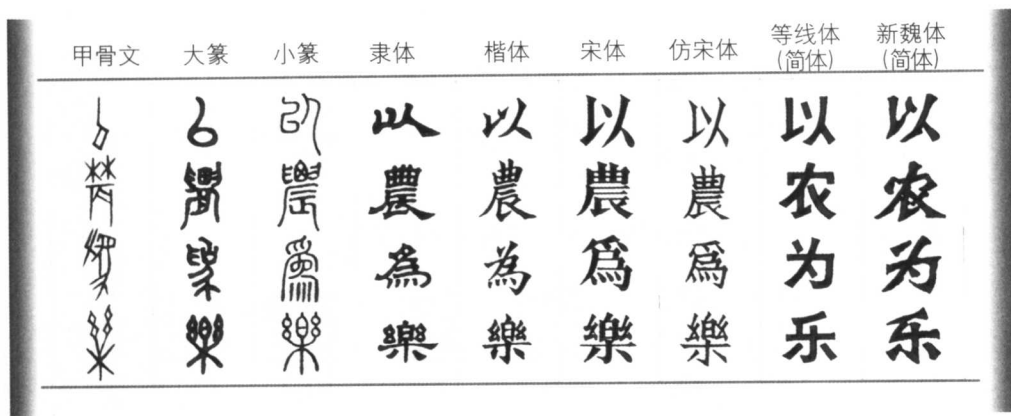 甲骨文 大篆 小篆 隶体 楷体 宋体 仿宋体 等线体(简体) 新魏体(简体)
以 以 以 以 以 以 以 以 以
農 農 農 農 農 農 農 农 农
為 為 為 為 為 爲 爲 为 为
樂 樂 樂 樂 樂 樂 樂 乐 乐